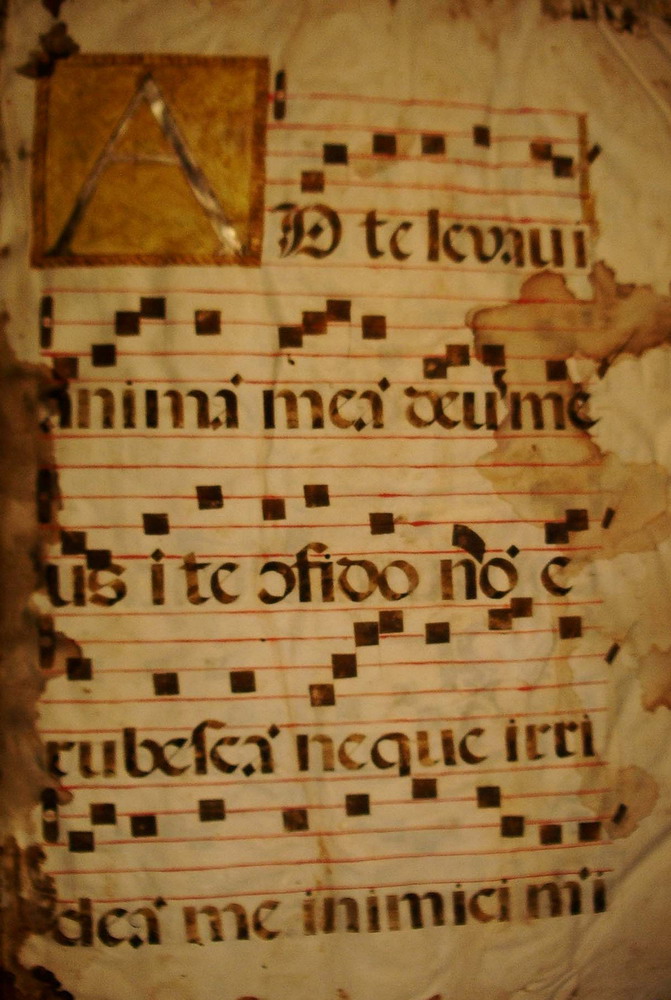 AD te levaui
animā meā deus' me
us i te ꝯfido nō e
rubescā neque irri
deā me inimici m'i